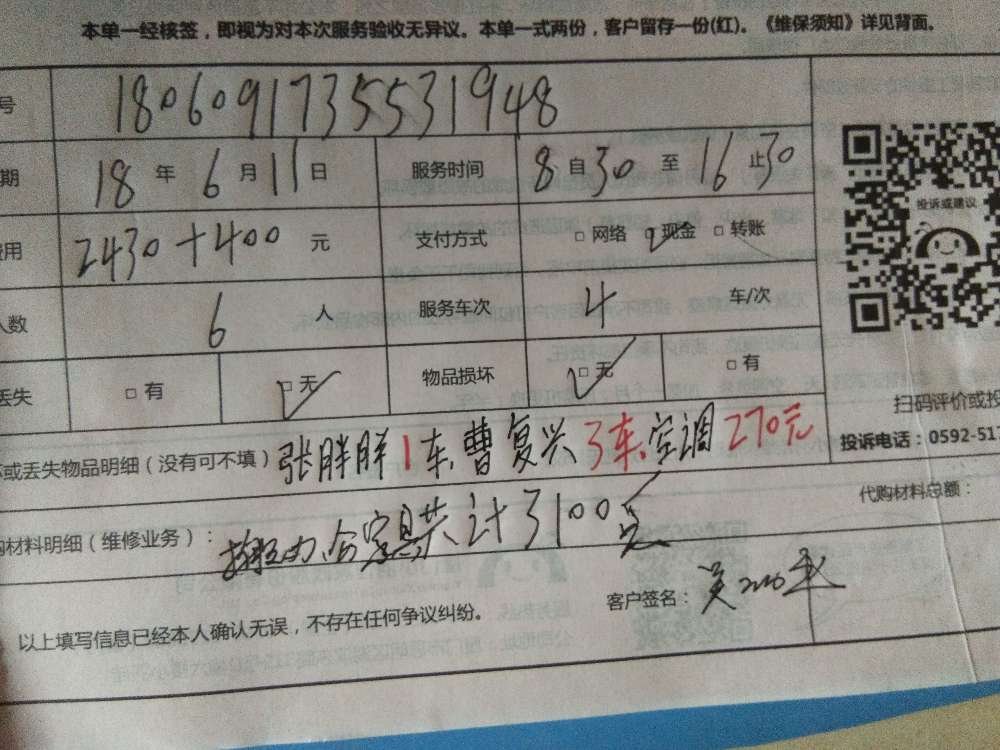 本单一经核签，即视为对本次服务验收无异议。本单一式两份，客户留存一份(红)。《维保须知》详见背面。
号 180609173553 1948
期 18 年 6 月 11 日 服务时间 8 自 30 至 16 止 30
费用 2430+400 元 支付方式 □ 网络 现金 □ 转账
人数 6 人 服务车次 4 车/次
丢失 □ 有 □ 无 物品损坏 □ 无 □ 有
投诉或建议
扫码评价或投
投诉电话：0592-517
坏或丢失物品明细（没有可不填） 张胖胖1车 曹复兴3车 空调270元
代购材料总额：
购材料明细（维修业务）： 搬办公家具共计3100元
客户签名：
以上填写信息已经本人确认无误，不存在任何争议纠纷。